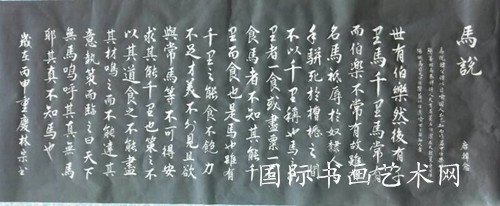 馬說
唐韓愈
世有伯樂然後有千
里馬千里馬常有
而伯樂不常有故雖有
名馬祗辱於奴隸人之
手駢死於槽櫪之間
不以千里稱也馬之千
里者一食或盡粟一石
食馬者不知其能千
里而食也是馬也雖有
千里之能食不飽力
不足才美不外見且欲
與常馬等不可得安
求其能千里也策之不
以其道食之不能盡
其材鳴之而不能通其
意執策而臨之曰天下
無馬嗚呼其真無馬
耶其真不知馬也
歲在丙申重慶林宗書
国际书画艺术网